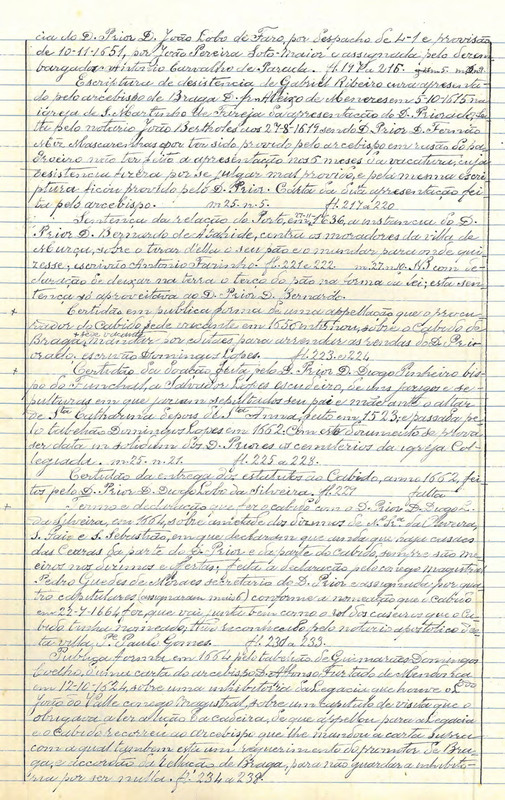 cia do D. Prior D. João Lobo de Faro, por despacho de 4-1 e provisão
de 10-11-1651, por João Pereira Soto-maior e assignada pelo desem-
bargador Antonio Carvalho de Parada. fl. 197 a 215. m 5. n
Escriptura de desistencia de Gabriel Ribeiro cura apresenta-
do pelo arcebispo de Braga D. fr. Aleixo de Menezes em 5-10-1615 na
igreja de S. Martinho de da apresentação do D. Priorado, fei-
ta pelo notario João aos 27-8-1619 sendo D. Prior D. Fernão
Mascarenhas por ter sido provido pelo arcebispo em rasão do pa-
droeiro não ter feito a apresentação nos 5 meses da vacatura, cuja
desistencia fizera por se julgar mal provido, e pela mesma escri-
ptura ficou provido pelo D. Prior. Custa da apresentação fei-
ta pelo arcebispo. m 25. n. 5. fl. 217 a 220
Sentença da relação do Porto, em 36, a instancia do D.
Prior D. Bernardo de Ataide, contra os moradores da villa de
Murça, sobre o tirar d'ella o seu pão e o mandar para onde qui-
zesse, escrivão Antonio Farinho. fl. 221 e 222. m. 27. n. com de-
claração de deixar na terra o terço do pão na forma da lei; esta sen-
tença só aproveitava ao D. Prior D. Bernardo.
Certidão em publica forma de uma appellação que o procu-
rador do Cabido, sede vacante em 1650 interpoz, sobre o Cabido de
Braga, mandar por editaes para arrendar as rendas do D. Prio-
rado, escrivão Domingos Lopes. fl. 223. e 224.
Certidão da doação feita pelo D. Prior D. Diogo Pinheiro bis-
po do Funchal, a Salvador Lopes escudeiro, de uns jazigos e se-
pulturas em que jaziam sepultados seu pai e mãe ante o altar
de Sta Catharina depois de Sta Anna, feito em 1523, e passada pe-
lo tabelião Domingos Lopes em 1662. Com este documento se prova
ser data in solidum dos D. Priores os cemiterios da igreja Col-
legiada. m. 25. n. 21. fl. 225 a 228.
Certidão da entrega dos estatutos ao Cabido, anno 1662, fei-
tos pelo D. Prior D. Diogo Lobo da Silveira. fl. 229 falta
Termo e declaração que fez o cabido com o D. Prior D. Diogo L.
da Silveira, em 1664, sobre metade dos dizimos de N. Sra. da Oliveira,
S. Paio e S. Sebastião, em que declaram que ainda que haja casaes
das Cearas da parte do D. Prior e da parte do cabido, sempre são me-
eiros nos dizimos e ofertas, feita a declaração pelo conego magistral
Pedro Guedes de Moraes secretario do D. Prior e assignada por qua-
tro capitulares (assignaram mais 6) conforme a nomeação que o Cabido
em 22-7-1664 fez, que vai junta bem como o rol dos caseiros que o Ca-
bido tinha nomeado, tudo reconhecido pelo notario apostolico des-
ta villa Pe. Paulo Gomes. fl. 230 a 233.
Publica forma em 1664 pelo tabelião de Guimarães Domingos
Coelho, de uma carta do arcebispo D. Affonso Furtado de Mendonça
em 12-10-1624, sobre uma inhibitoria da Legacia que houve o Dor.
Jorge do Valle conego magistral, sobre um capitulo de visita que o
obrigava a ler a lição da cadeira, de que appellou para a Legacia
e o Cabido recorreu ao arcebispo que lhe mandou a carta
com a qual tambem está um requerimento do promotor de Bra-
ga, e accordão da relação de Braga, para não guardar a inhibito-
ria por ser nulla. fl. 234 a 238.